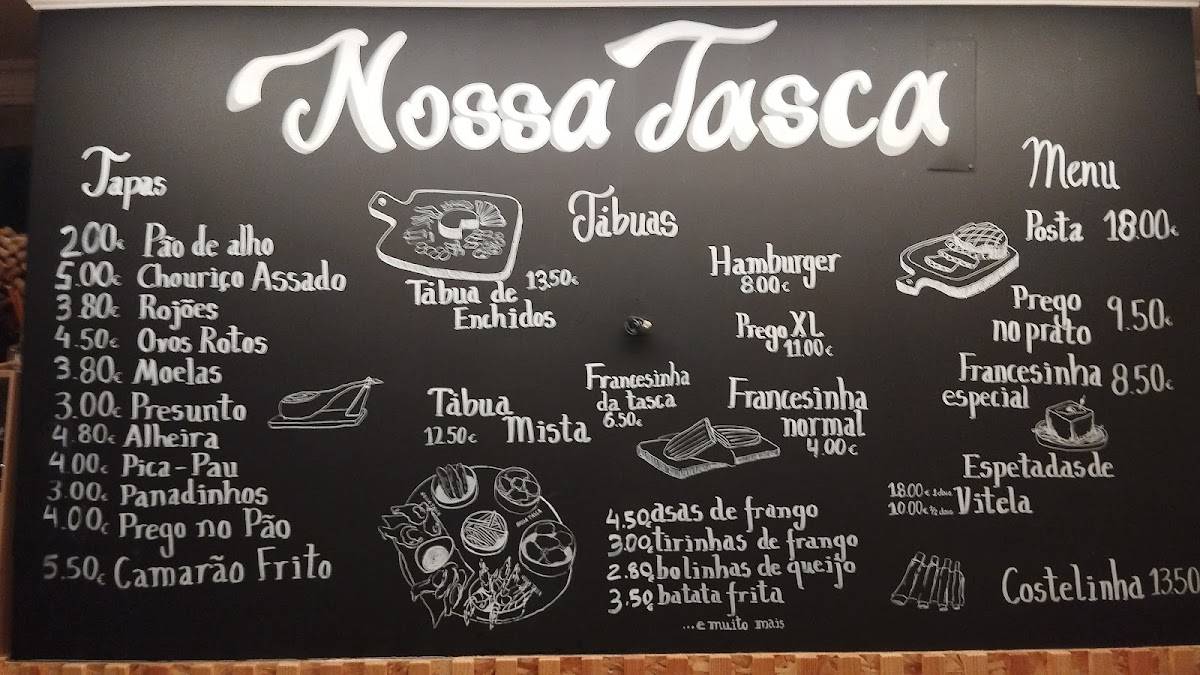 Nossa Tasca
Tapas
2.00€ Pão de alho
5.00€ Chouriço Assado
3.80€ Rojões
4.50€ Ovos Rotos
3.80€ Moelas
3.00€ Presunto
4.80€ Alheira
4.00€ Pica-Pau
3.00€ Panadinhos
4.00€ Prego no Pão
5.50€ Camarão Frito
Tábuas
Tábua de 13.50€
Enchidos
Tábua
12.50€ Mista
Hamburger
8.00€
Prego XL
11.00€
Francesinha
da tasca
6.50€
Francesinha
normal
4.00€
4.50€ asas de frango
3.00€ tirinhas de frango
2.80€ bolinhas de queijo
3.50€ batata frita
...e muito mais
Menu
Posta 18.00€
Prego
no prato 9.50€
Francesinha
especial 8.50€
Espetadas de
Vitela
18.00€
10.00€ 1/2
Costelinha 13.50